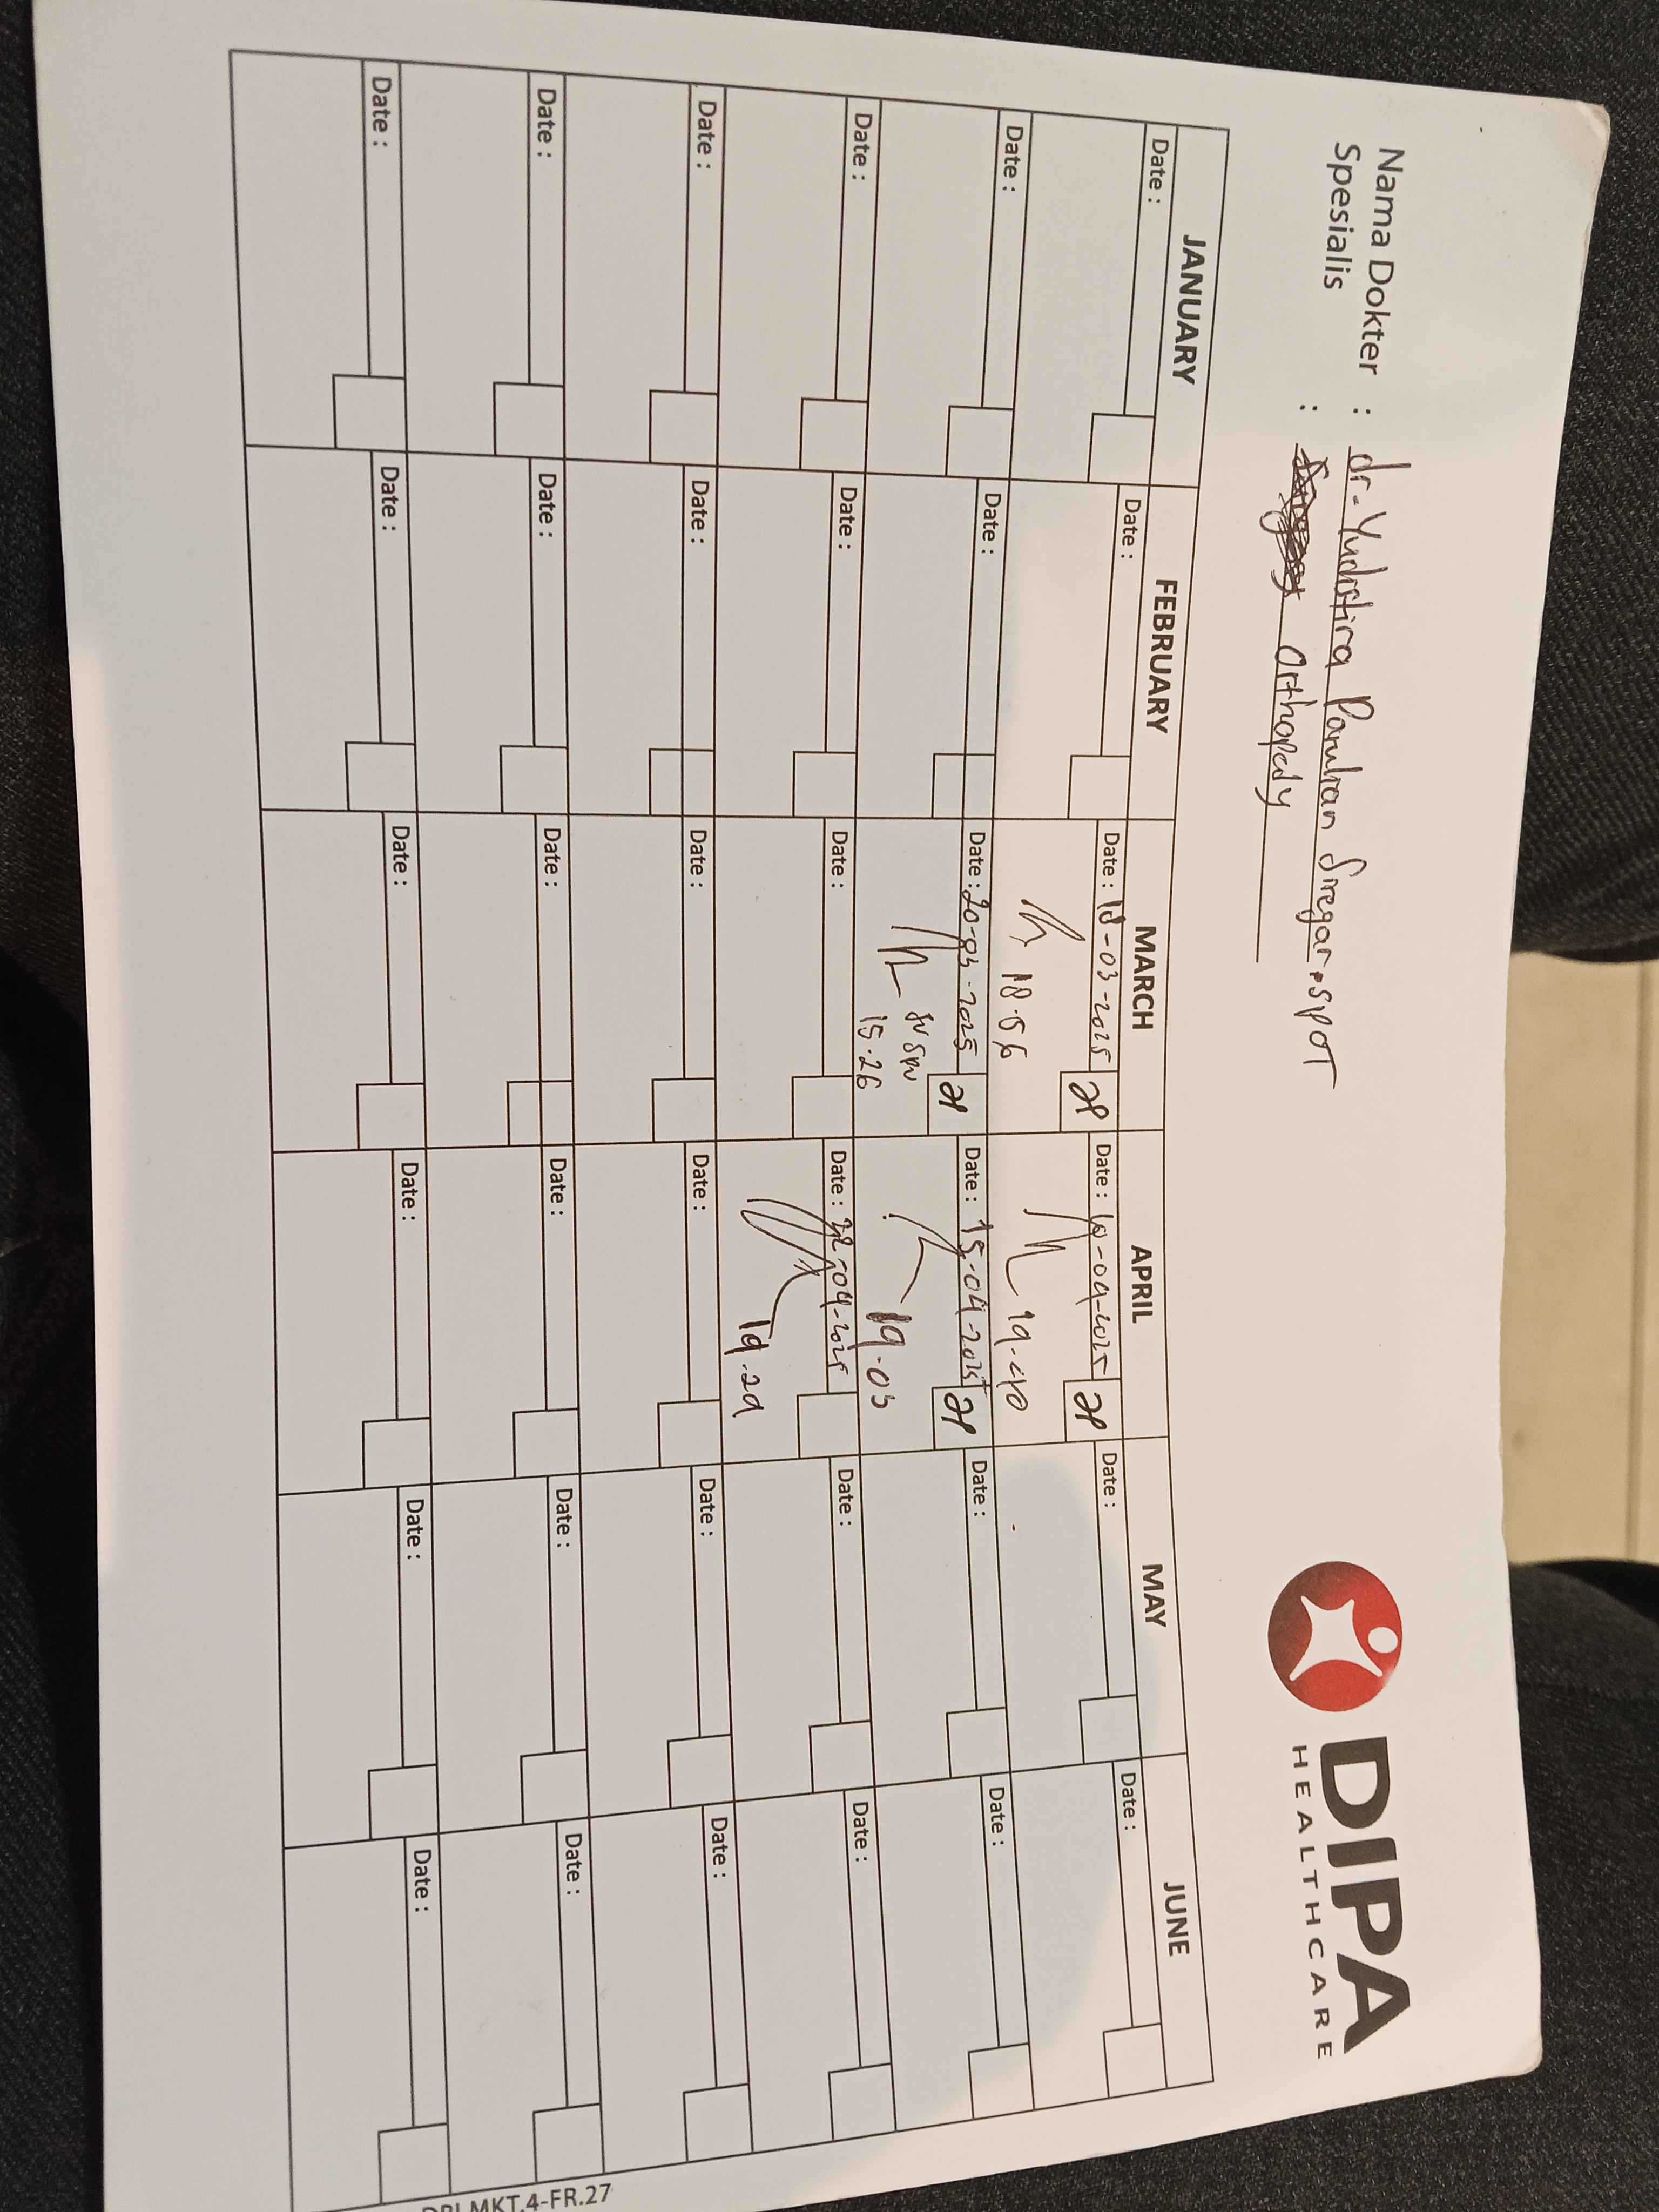 Nama Dokter : dr. Yudistira Panuhan Siregar, SpOT
Spesialis : Orthopedy
DIPA
HEALTHCARE
JANUARY FEBRUARY MARCH APRIL MAY JUNE
Date : Date : Date : 18-03-2025 Date : 10-04-2025 Date : Date :
18.56 19.40
Date : Date : Date : 20-03-2025 Date : 15-04-2025 Date : Date :
15.26 19.03
Date : Date : Date : Date : 22-04-2025 Date : Date :
19.29
Date : Date : Date : Date : Date : Date :
Date : Date : Date : Date : Date : Date :
Date : Date : Date : Date : Date : Date :
MKT.4-FR.27